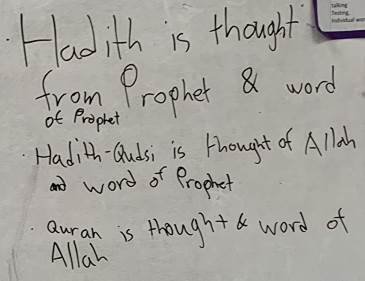 talking
Testing
Individual wor
· Hadith is thought
from Prophet & word
of Prophet
· Hadith-Qudsi is thought of Allah
and word of Prophet
· Quran is thought & word of
Allah